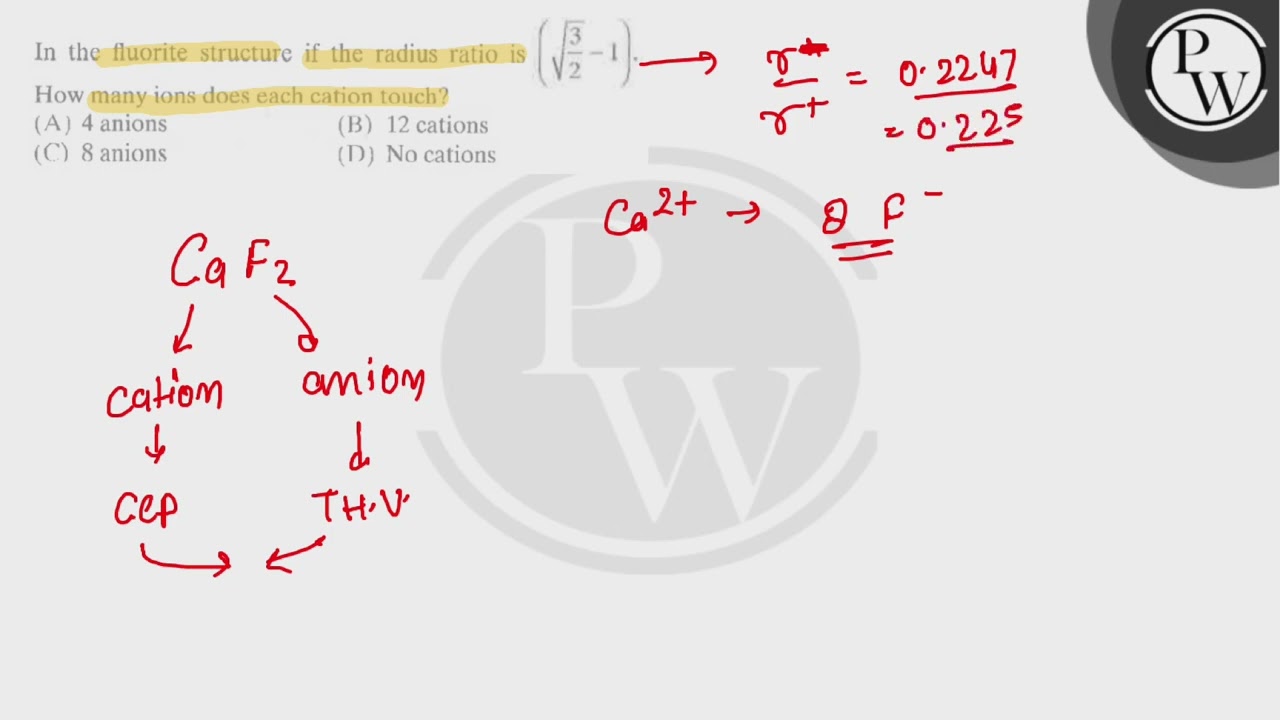 In the fluorite structure if the radius ratio is (√3/2 − 1).
How many ions does each cation touch?
(A) 4 anions (B) 12 cations
(C) 8 anions (D) No cations
r⁻/r⁺ = 0.2247
= 0.225
Ca²⁺ → 8 F⁻
CaF₂
cation anion
CCP T.H.V.
PW
PW